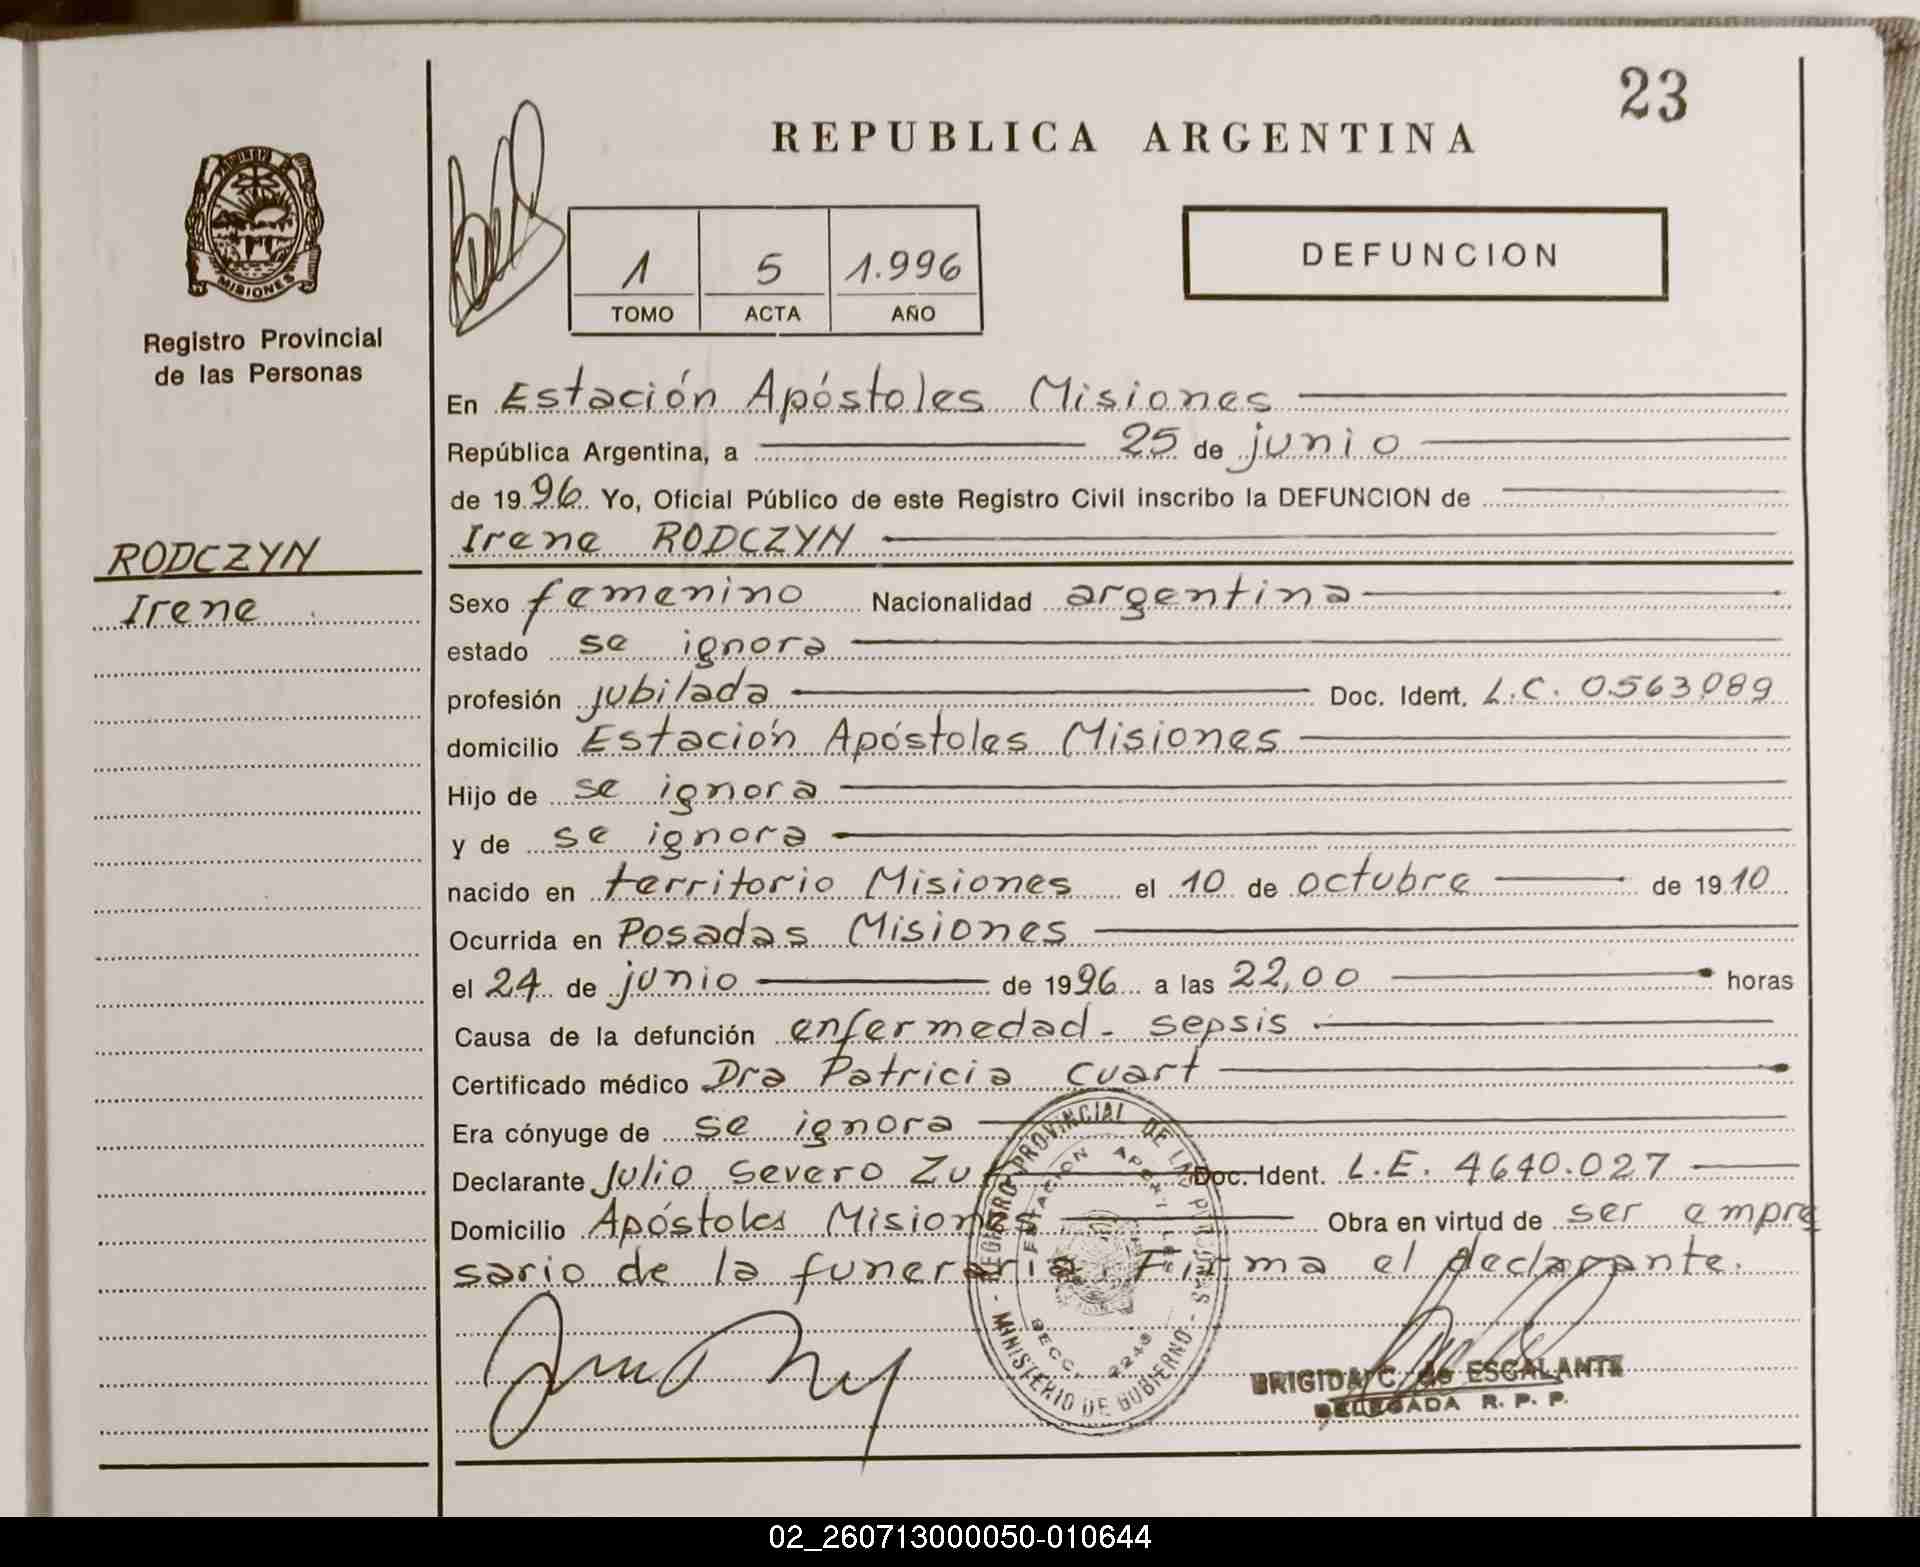 23
REPUBLICA ARGENTINA
MISIONES
Registro Provincial
de las Personas
1 5 1.996
TOMO ACTA AÑO
DEFUNCION
RODCZYN
Irene
En Estación Apóstoles Misiones
República Argentina, a 25 de junio
de 1996 Yo, Oficial Público de este Registro Civil inscribo la DEFUNCION de
Irene RODCZYN
Sexo femenino Nacionalidad argentina
estado se ignora
profesión jubilada Doc. Ident. L.C. 0.563.089
domicilio Estación Apóstoles Misiones
Hijo de se ignora
y de se ignora
nacido en territorio Misiones el 10 de octubre de 1910
Ocurrida en Posadas Misiones
el 24 de junio de 1996 a las 22,00 horas
Causa de la defunción enfermedad - sepsis
Certificado médico Dra Patricia Cuart
Era cónyuge de se ignora
Declarante Julio Severo Doc. Ident. L.E. 4640.027
Domicilio Apóstoles Misiones Obra en virtud de ser empre
sario de la funeraria Firma el declarante.
REGISTRO PROVINCIAL DE LAS PERSONAS - MINISTERIO DE GOBIERNO -
ESTACION
SECC. 2248
BRIGIDA C. de ESCALANTE
DELEGADA R. P. P.
02_260713000050-010644